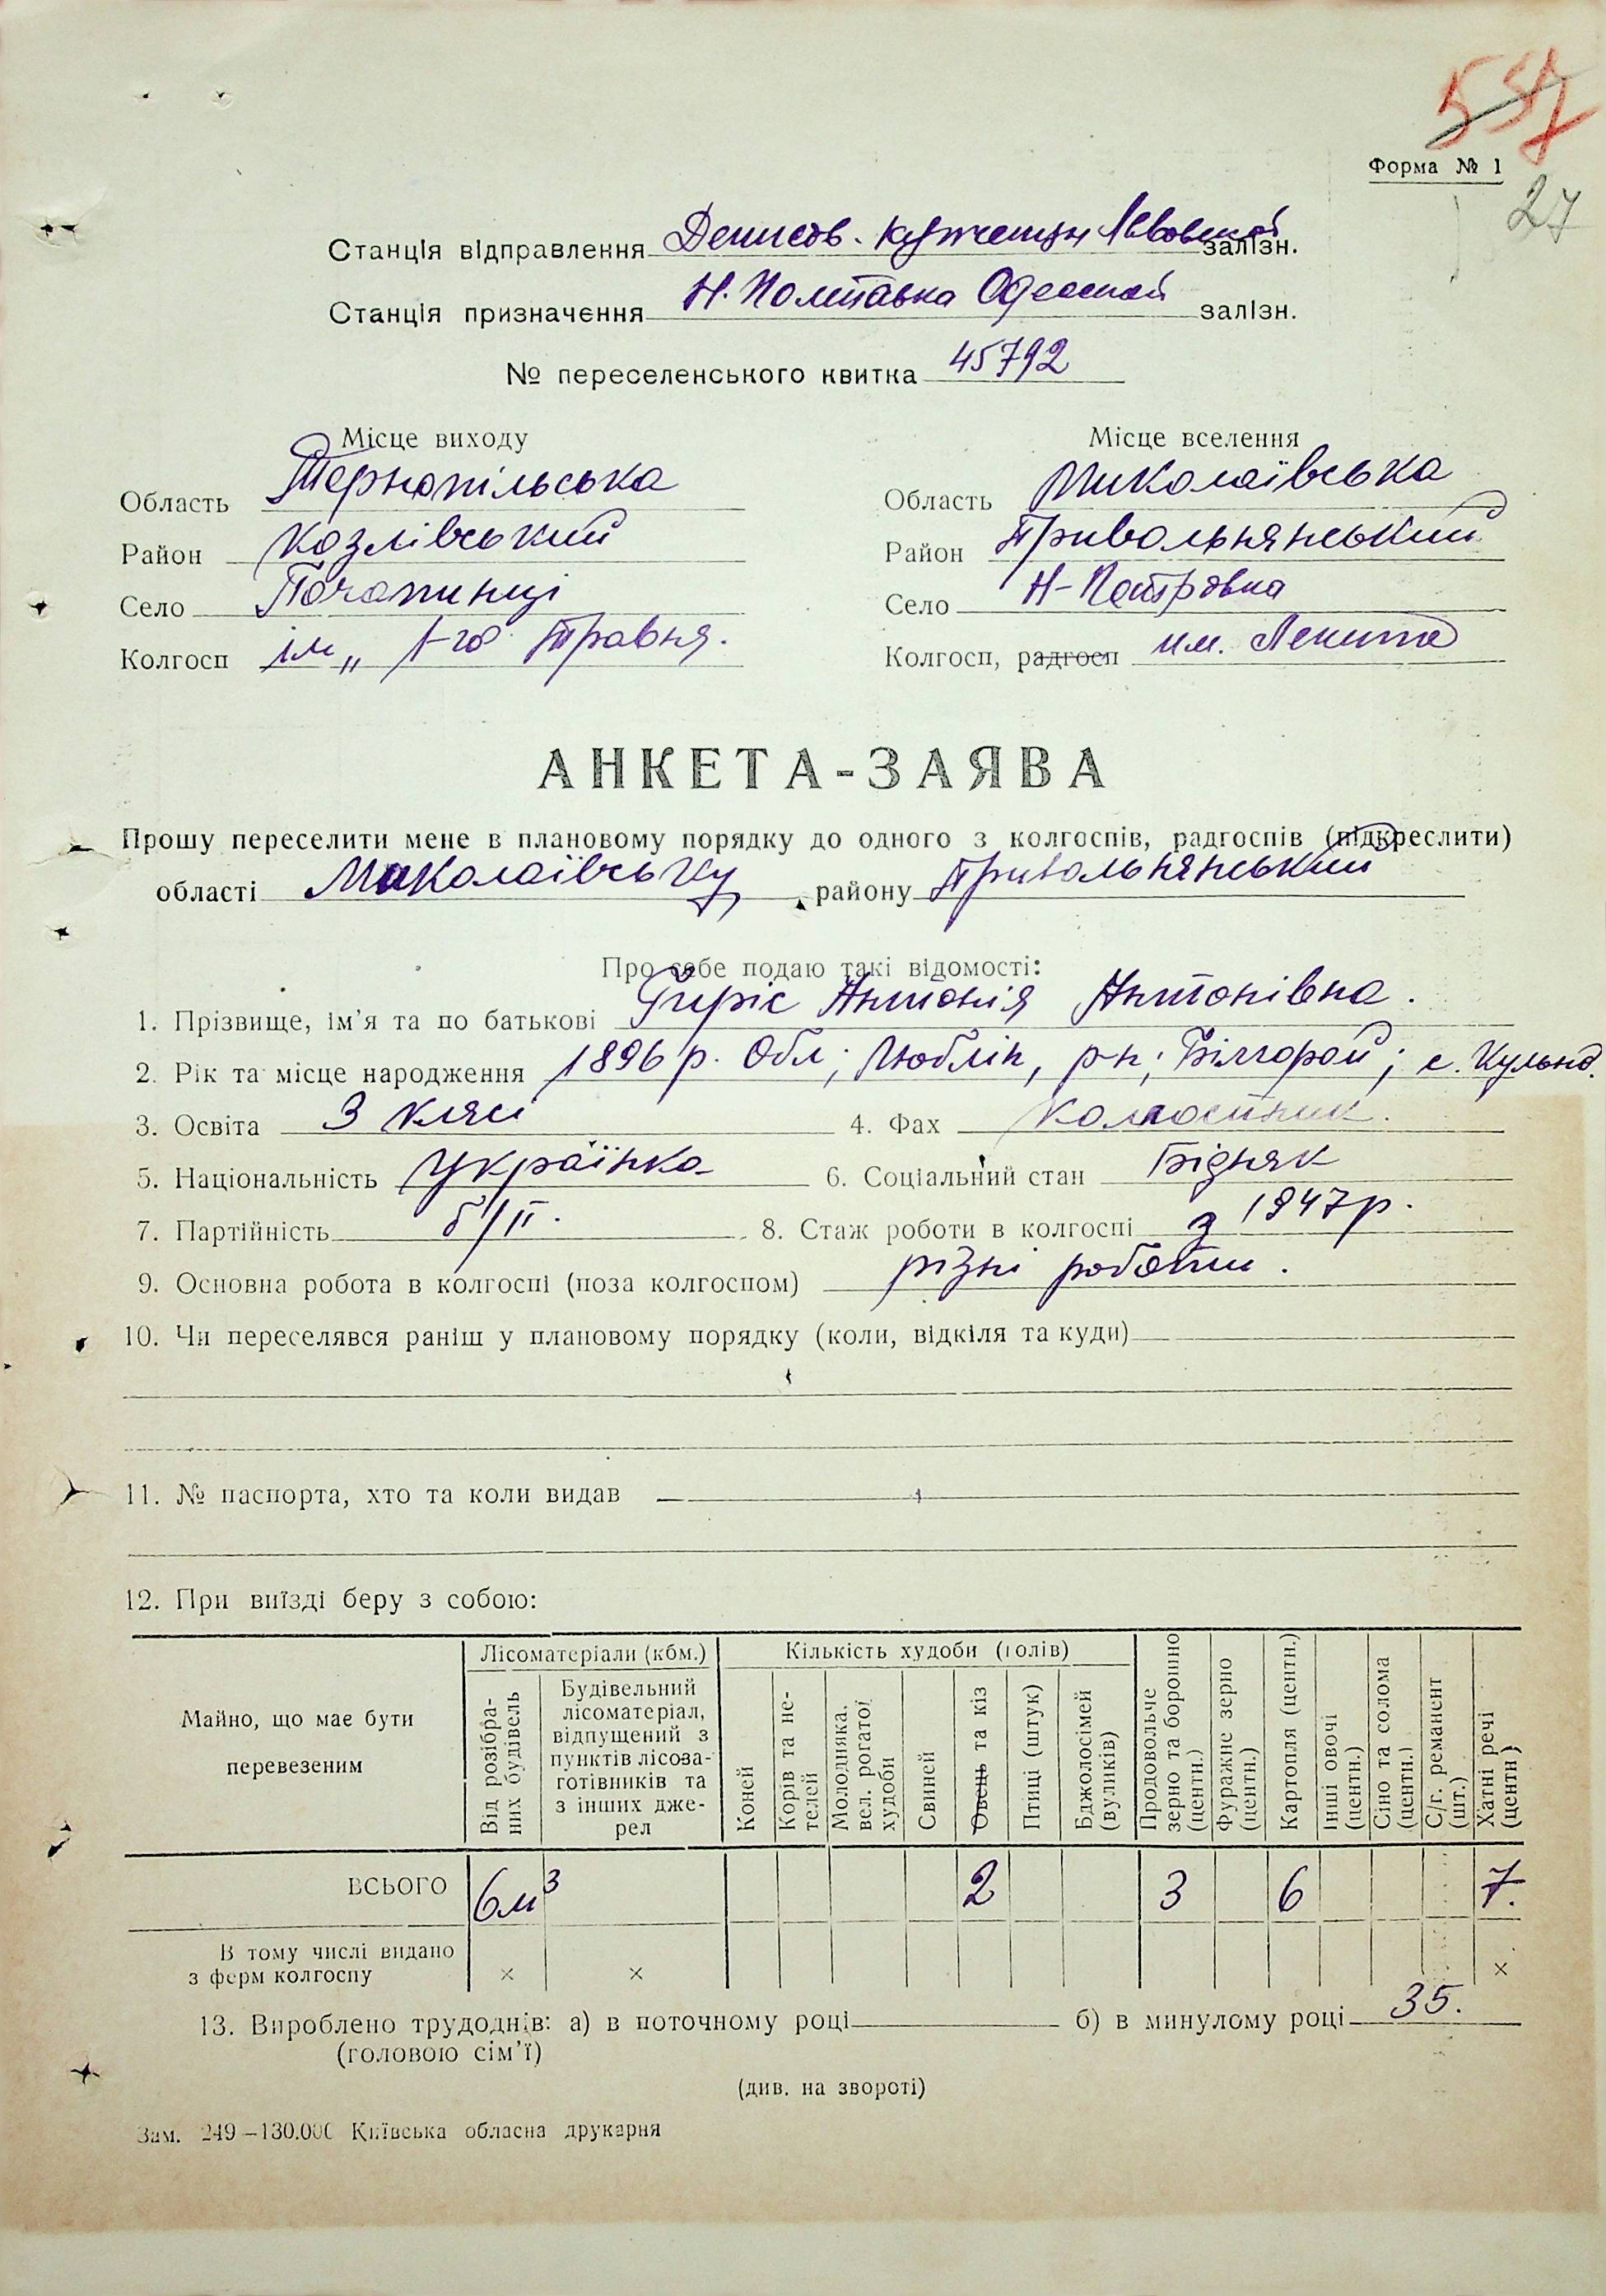 537
Форма № 1
27
Станція відправлення Денисов. Купченцы Львовской залізн.
Станція призначення Н. Полтавка Одесской залізн.
№ переселенського квитка 45792
Місце виходу
Область Тернопільська
Район Козлівський
Село Почапинці
Колгосп ім „ 1-го Травня.
Місце вселення
Область Миколаївська
Район Привольнянський
Село Н-Петровка
Колгосп, радгосп им. Ленина
АНКЕТА-ЗАЯВА
Прошу переселити мене в плановому порядку до одного з колгоспів, радгоспів (підкреслити)
області Миколаївську, району Привольнянський
Про себе подаю такі відомості:
1. Прізвище, ім’я та по батькові Антонія Антонівна.
2. Рік та місце народження 1896 р. Обл; Люблін, р-н; Білгорой; с. Кульно.
3. Освіта 3 кляси 4. Фах колгоспник.
5. Національність Українка 6. Соціальний стан Бідняк
7. Партійність б/п. 8. Стаж роботи в колгоспі з 1947 р.
9. Основна робота в колгоспі (поза колгоспом) різні роботи.
10. Чи переселявся раніш у плановому порядку (коли, відкіля та куди) —
11. № паспорта, хто та коли видав —
12. При виїзді беру з собою:
Майно, що має бути перевезеним
Лісоматеріали (кбм.)
Від розібраних будівель
Будівельний лісоматеріал, відпущений з пунктів лісозаготівників та з інших джерел
Кількість худоби (голів)
Коней
Корів та нетелей
Молодняка, вел. рогатої худоби
Свиней
Овець та кіз
Птиці (штук)
Бджолосімей (вуликів)
Продовольче зерно та борошно (центн.)
Фуражне зерно (центн.)
Картопля (центн.)
Інші овочі (центн.)
Сіно та солома (центн.)
С/г. реманент (шт.)
Хатні речі (центн)
ВСЬОГО 6м³ 2 3 6 7.
В тому числі видано з ферм колгоспу × × ×
13. Вироблено трудоднів: а) в поточному році б) в минулому році 35.
(головою сім’ї)
(див. на звороті)
Зам. 249—130.000 Київська обласна друкарня